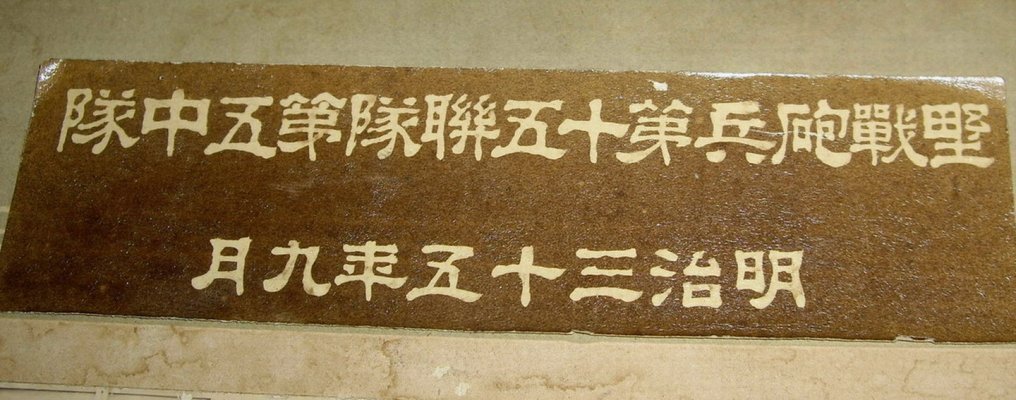 野戰砲兵第十五聯隊第五中隊
明治三十五年九月